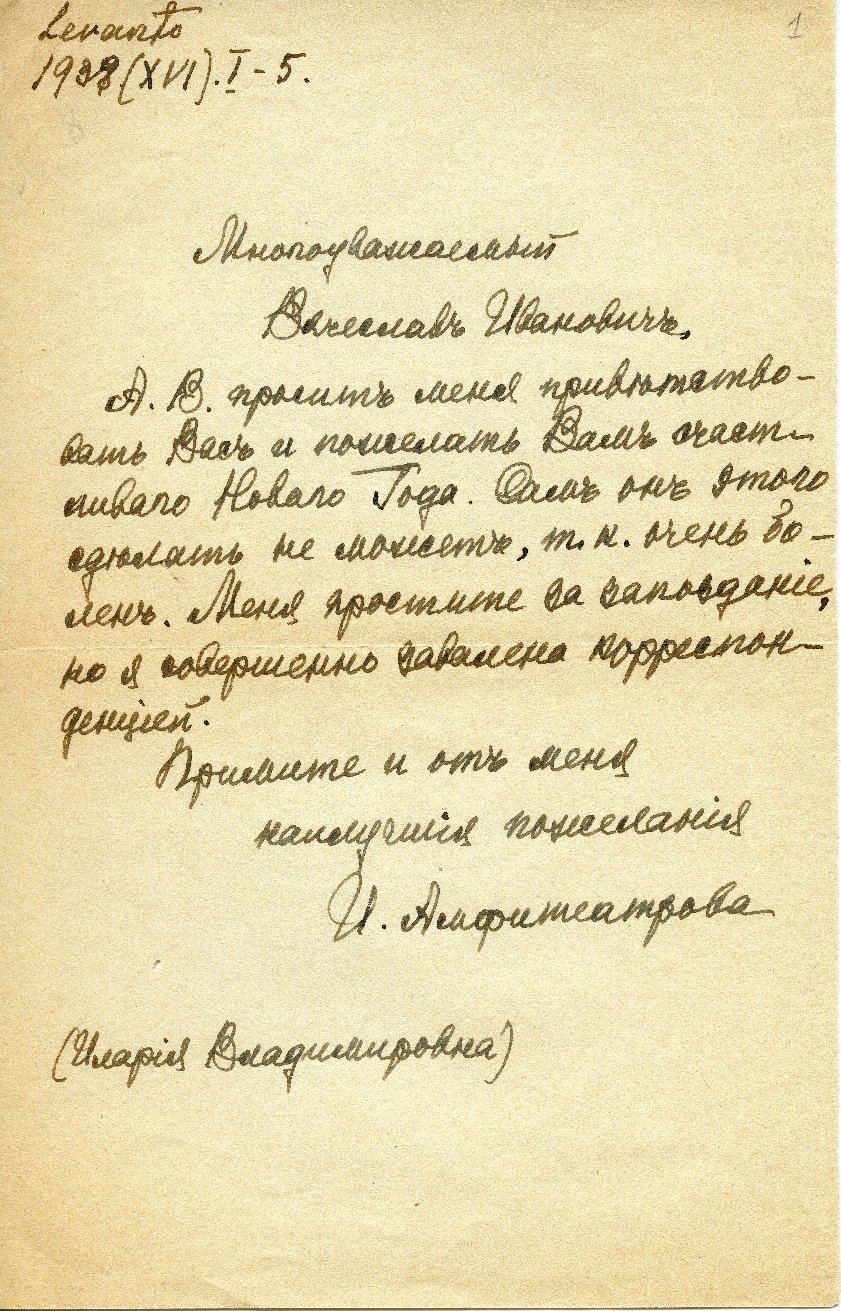 Levanto
1938 (XVI). I - 5.
1
Многоуважаемый
Вячеславъ Ивановичъ,
А. В. проситъ меня привѣтство-
вать Васъ и пожелать Вамъ счаст-
ливаго Новаго Года. Самъ онъ этого
сдѣлать не можетъ, т. к. очень бо-
ленъ. Меня простите за запозданіе,
но я совершенно завалена корреспон-
денціей.
Примите и отъ меня
наилучшія пожеланія
И. Амфитеатрова
(Иларія Владимировна)